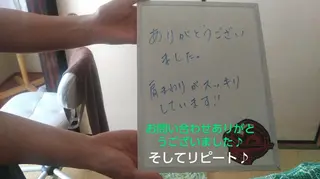 ありがとうござい
ました。
肩まわりがスッキリ
しています!!
お問い合わせありがと
うございました♪
そしてリピート♪